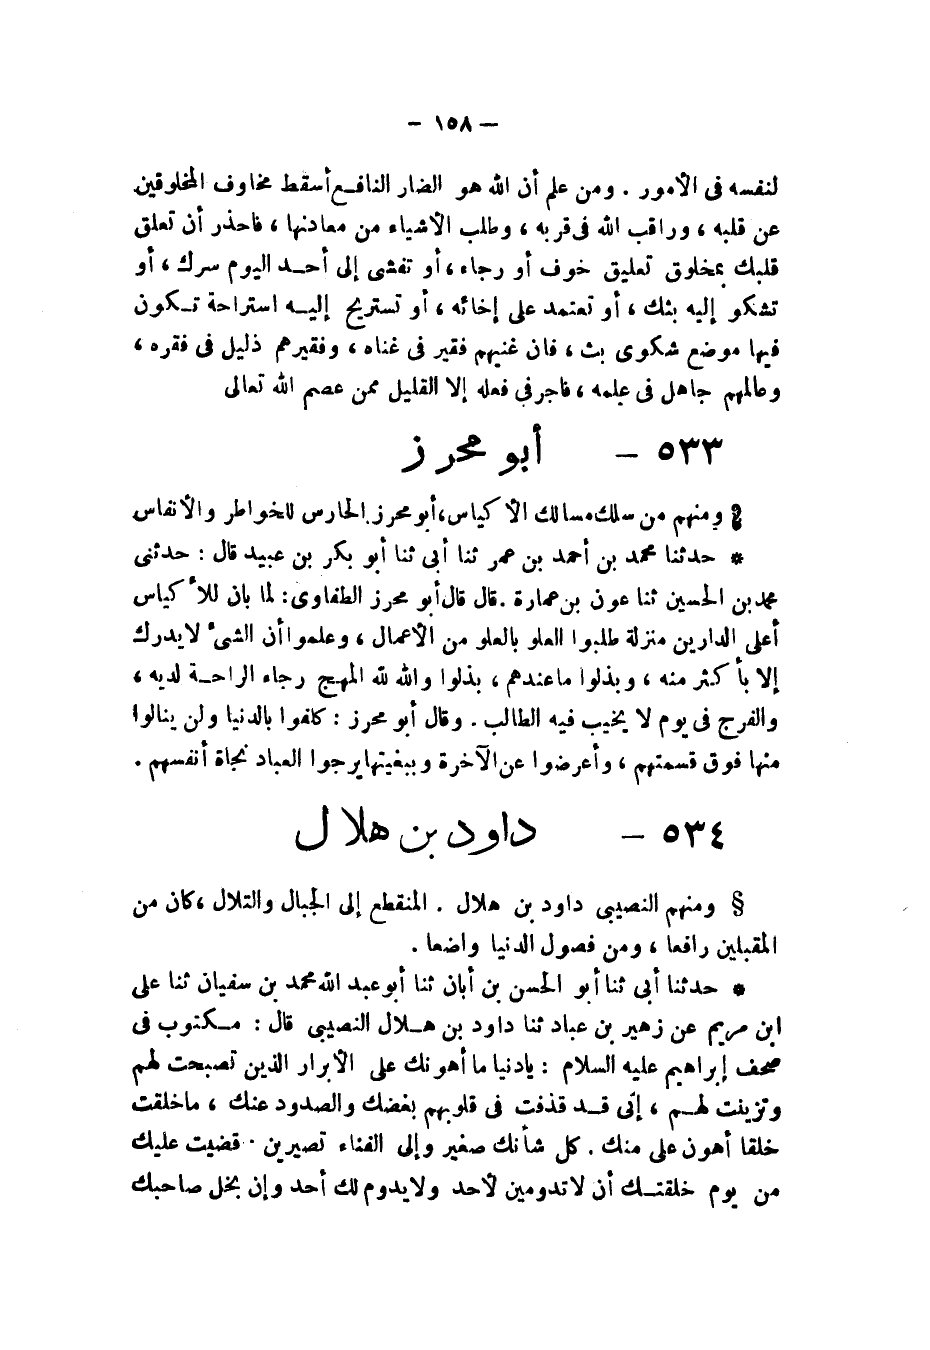 — ١٥٨ —
لنفسه فى الأمور . ومن علم أن الله هو الضار النافع أسقط مخاوف المخلوقين
عن قلبه ، وراقب الله فى قربه ، وطلب الأشياء من معادنها ، فاحذر أن تعلق
قلبك بمخلوق تعليق خوف أو رجاء ، أو تفشى إلى أحد اليوم سرك ، أو
تشكو إليه بثك ، أو تعتمد على إخائه ، أو تستريح إليه استراحة تكون
فيها موضع شكوى بث ، فان غنيهم فقير فى غناه ، وفقيرهم ذليل فى فقره ،
وعالمهم جاهل فى علمه ، فاجر فى فعله إلا القليل ممن عصم الله تعالى
٥٣٣ — أبو محرز
§ ومنهم من سلك مسالك الأكياس، أبو محرز الحارس للخواطر والأنفاس
* حدثنا محمد بن أحمد بن عمر ثنا أبى ثنا أبو بكر بن عبيد قال : حدثنى
محمد بن الحسين ثنا عون بن عمارة . قال قال أبو محرز الطفاوى : لما بان للأكياس
أعلى الدارين منزلة طلبوا العلو بالعلو من الأعمال ، وعلموا أن الشىء لايدرك
إلا بأكثر منه ، وبذلوا ماعندهم ، بذلوا والله لله المهج رجاء الراحة لديه ،
والفرج فى يوم لا يخيب فيه الطالب . وقال أبو محرز : كلفوا بالدنيا ولن ينالوا
منها فوق قسمتهم ، وأعرضوا عن الآخرة وببغيتها يرجوا العباد نجاة أنفسهم .
٥٣٤ — داود بن هلال
§ ومنهم النصيبى داود بن هلال . المنقطع إلى الجبال والتلال ، كان من
المقبلين رافعا ، ومن فصول الدنيا واضعا .
* حدثنا أبى ثنا أبو الحسن بن أبان ثنا أبو عبد الله محمد بن سفيان ثنا على
ابن مريم عن زهير بن عباد ثنا داود بن هلال النصيبى قال : مكتوب فى
صحف إبراهيم عليه السلام : يادنيا ما أهونك على الأبرار الذين تصبحت لهم
وتزينت لهم ، إنى قد قذفت فى قلوبهم بغضك والصدود عنك ، ماخلقت
خلقا أهون على منك . كل شأنك صغير وإلى الفناء تصيرين . قضيت عليك
من يوم خلقتك أن لاتدومين لأحد ولايدوم لك أحد وإن بخل صاحبك